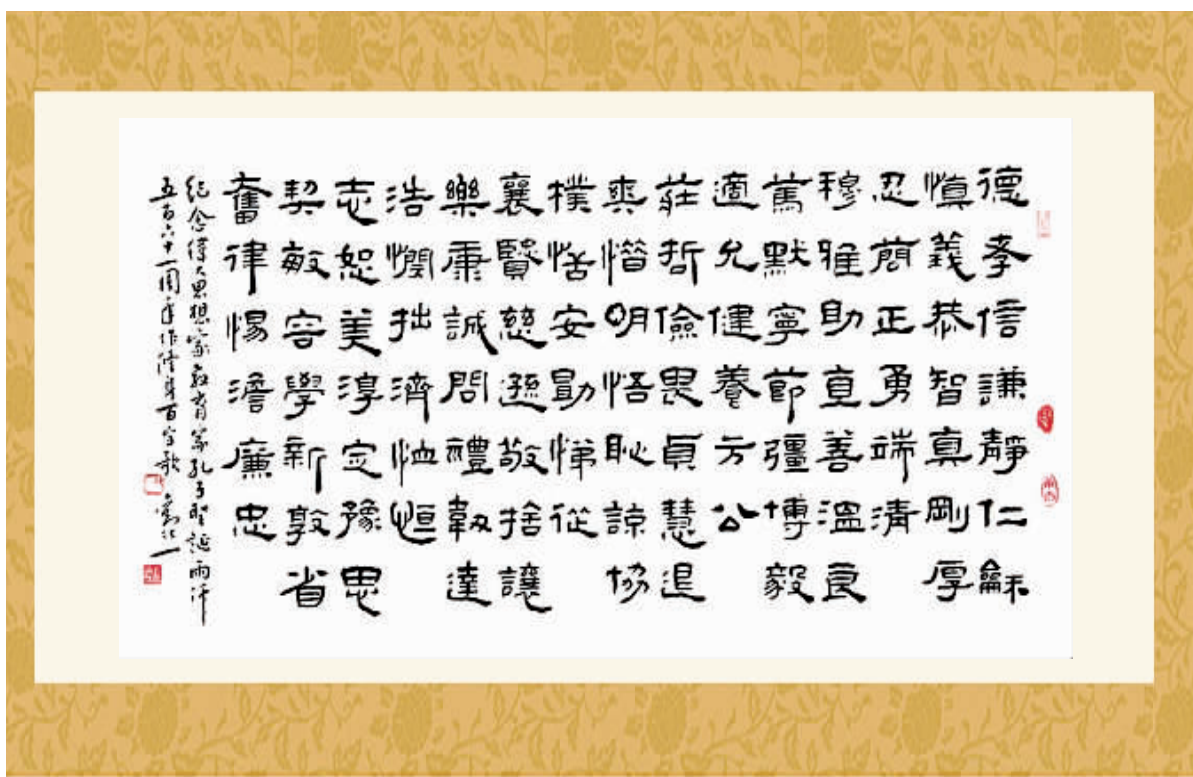 德孝信謙靜仁龢
慎義恭智真剛厚
忍蕳正勇端清
穆雅助直善溫良
篤默寧節彊博毅
適允健養方公
莊哲儉思貞慧退
爽惜明悟恥諒協
樸恬安勖悌從
襄賢慈遜敬捨讓
樂康誠問禮韌達
浩憫拙濟恤恒
志恕美淳定豫思
契敏容學新敦省
奮律惕澹廉忠
紀念偉大思想家教育家孔子聖誕兩仟
五百六十一周年作修身百字歌